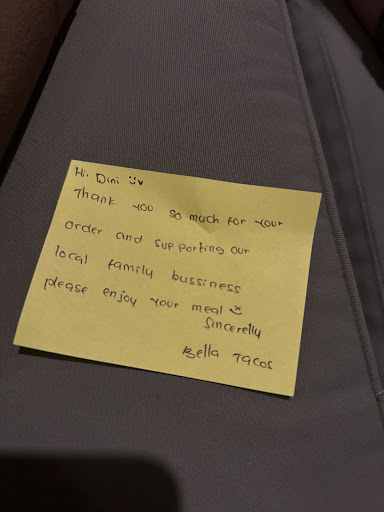 Hi Dini
Thank you so much for your
order and supporting our
local family bussiness
please enjoy your meal
Sincerelly
Bella Tacos